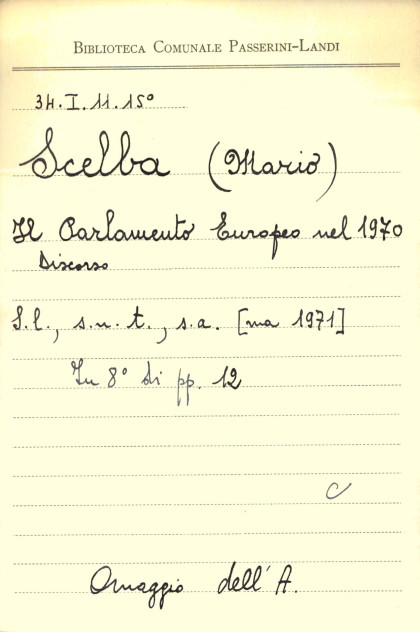 BIBLIOTECA COMUNALE PASSERINI-LANDI
34.I.11.15°
Scelba (Mario)
Il Parlamento Europeo nel 1970
Discorso
S.l., s.n.t., s.a. [ma 1971]
In 8° di pp. 12
C
Omaggio dell'A.